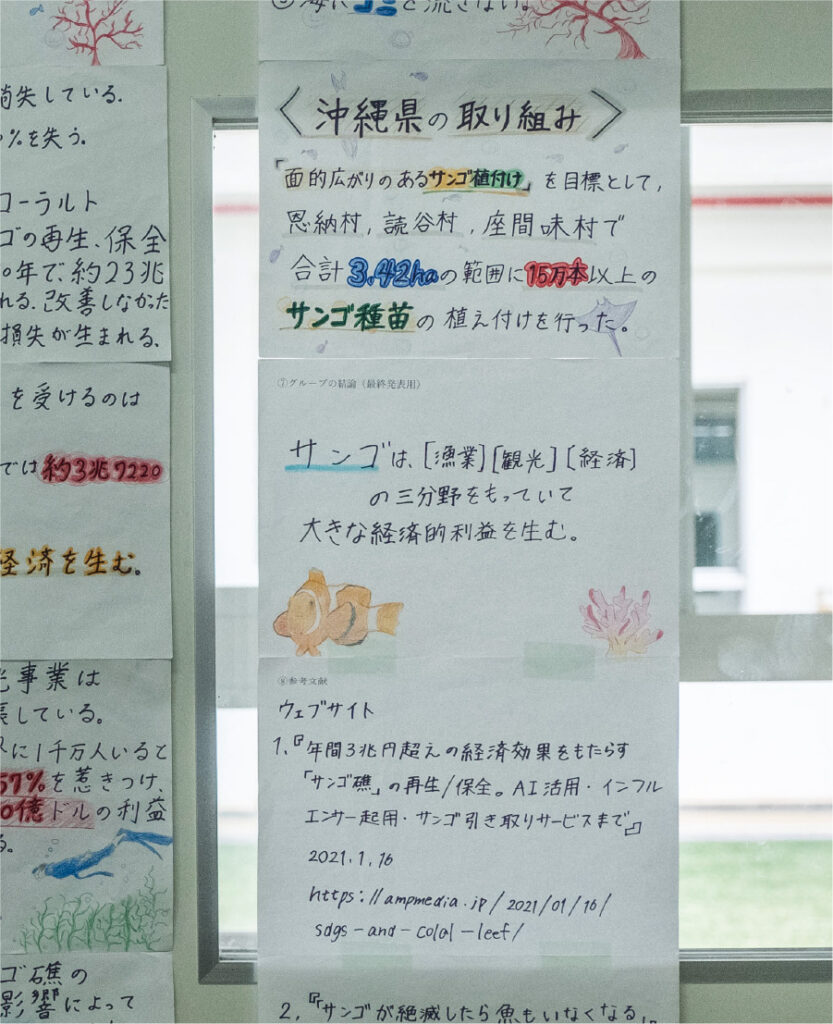 消失している.
%を失う.
コーラルト
ゴの再生、保全
0年で、約23兆
れる.改善しなかった
損失が生まれる.
を受けるのは
では約3兆7220
経済を生む。
光事業は
長している。
に1千万人いると
57%を惹きつけ、
0億ドルの利益
る。
ゴ礁の
影響によって
③海にゴミを流さない。
〈沖縄県の取り組み〉
「面的広がりのあるサンゴ植付け」を目標として,
恩納村,読谷村,座間味村で
合計3.42haの範囲に15万本以上の
サンゴ種苗の植え付けを行った。
⑦グループの結論(最終発表用)
サンゴは、[漁業][観光][経済]
の三分野をもっていて
大きな経済的利益を生む。
⑧参考文献
ウェブサイト
1.『年間3兆円超えの経済効果をもたらす
「サンゴ礁」の再生/保全。AI活用・インフル
エンサー起用・サンゴ引き取りサービスまで』
2021.1.16
https://ampmedia.jp/2021/01/16/
sdgs-and-colal-leef/
2.『「サンゴが絶滅したら魚もいなくなる」